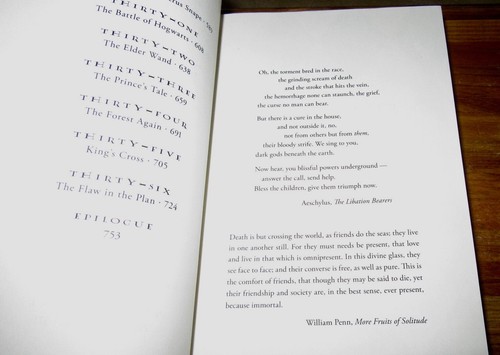 Snape · 589
THIRTY-ONE
The Battle of Hogwarts · 608
THIRTY-TWO
The Elder Wand · 638
THIRTY-THREE
The Prince's Tale · 659
THIRTY-FOUR
The Forest Again · 691
THIRTY-FIVE
King's Cross · 705
THIRTY-SIX
The Flaw in the Plan · 724
EPILOGUE
753
Oh, the torment bred in the race,
the grinding scream of death
and the stroke that hits the vein,
the hemorrhage none can staunch, the grief,
the curse no man can bear.
But there is a cure in the house,
and not outside it, no,
not from others but from them,
their bloody strife. We sing to you,
dark gods beneath the earth.
Now hear, you blissful powers underground —
answer the call, send help.
Bless the children, give them triumph now.
Aeschylus, The Libation Bearers
Death is but crossing the world, as friends do the seas; they live
in one another still. For they must needs be present, that love
and live in that which is omnipresent. In this divine glass, they
see face to face; and their converse is free, as well as pure. This is
the comfort of friends, that though they may be said to die, yet
their friendship and society are, in the best sense, ever present,
because immortal.
William Penn, More Fruits of Solitude